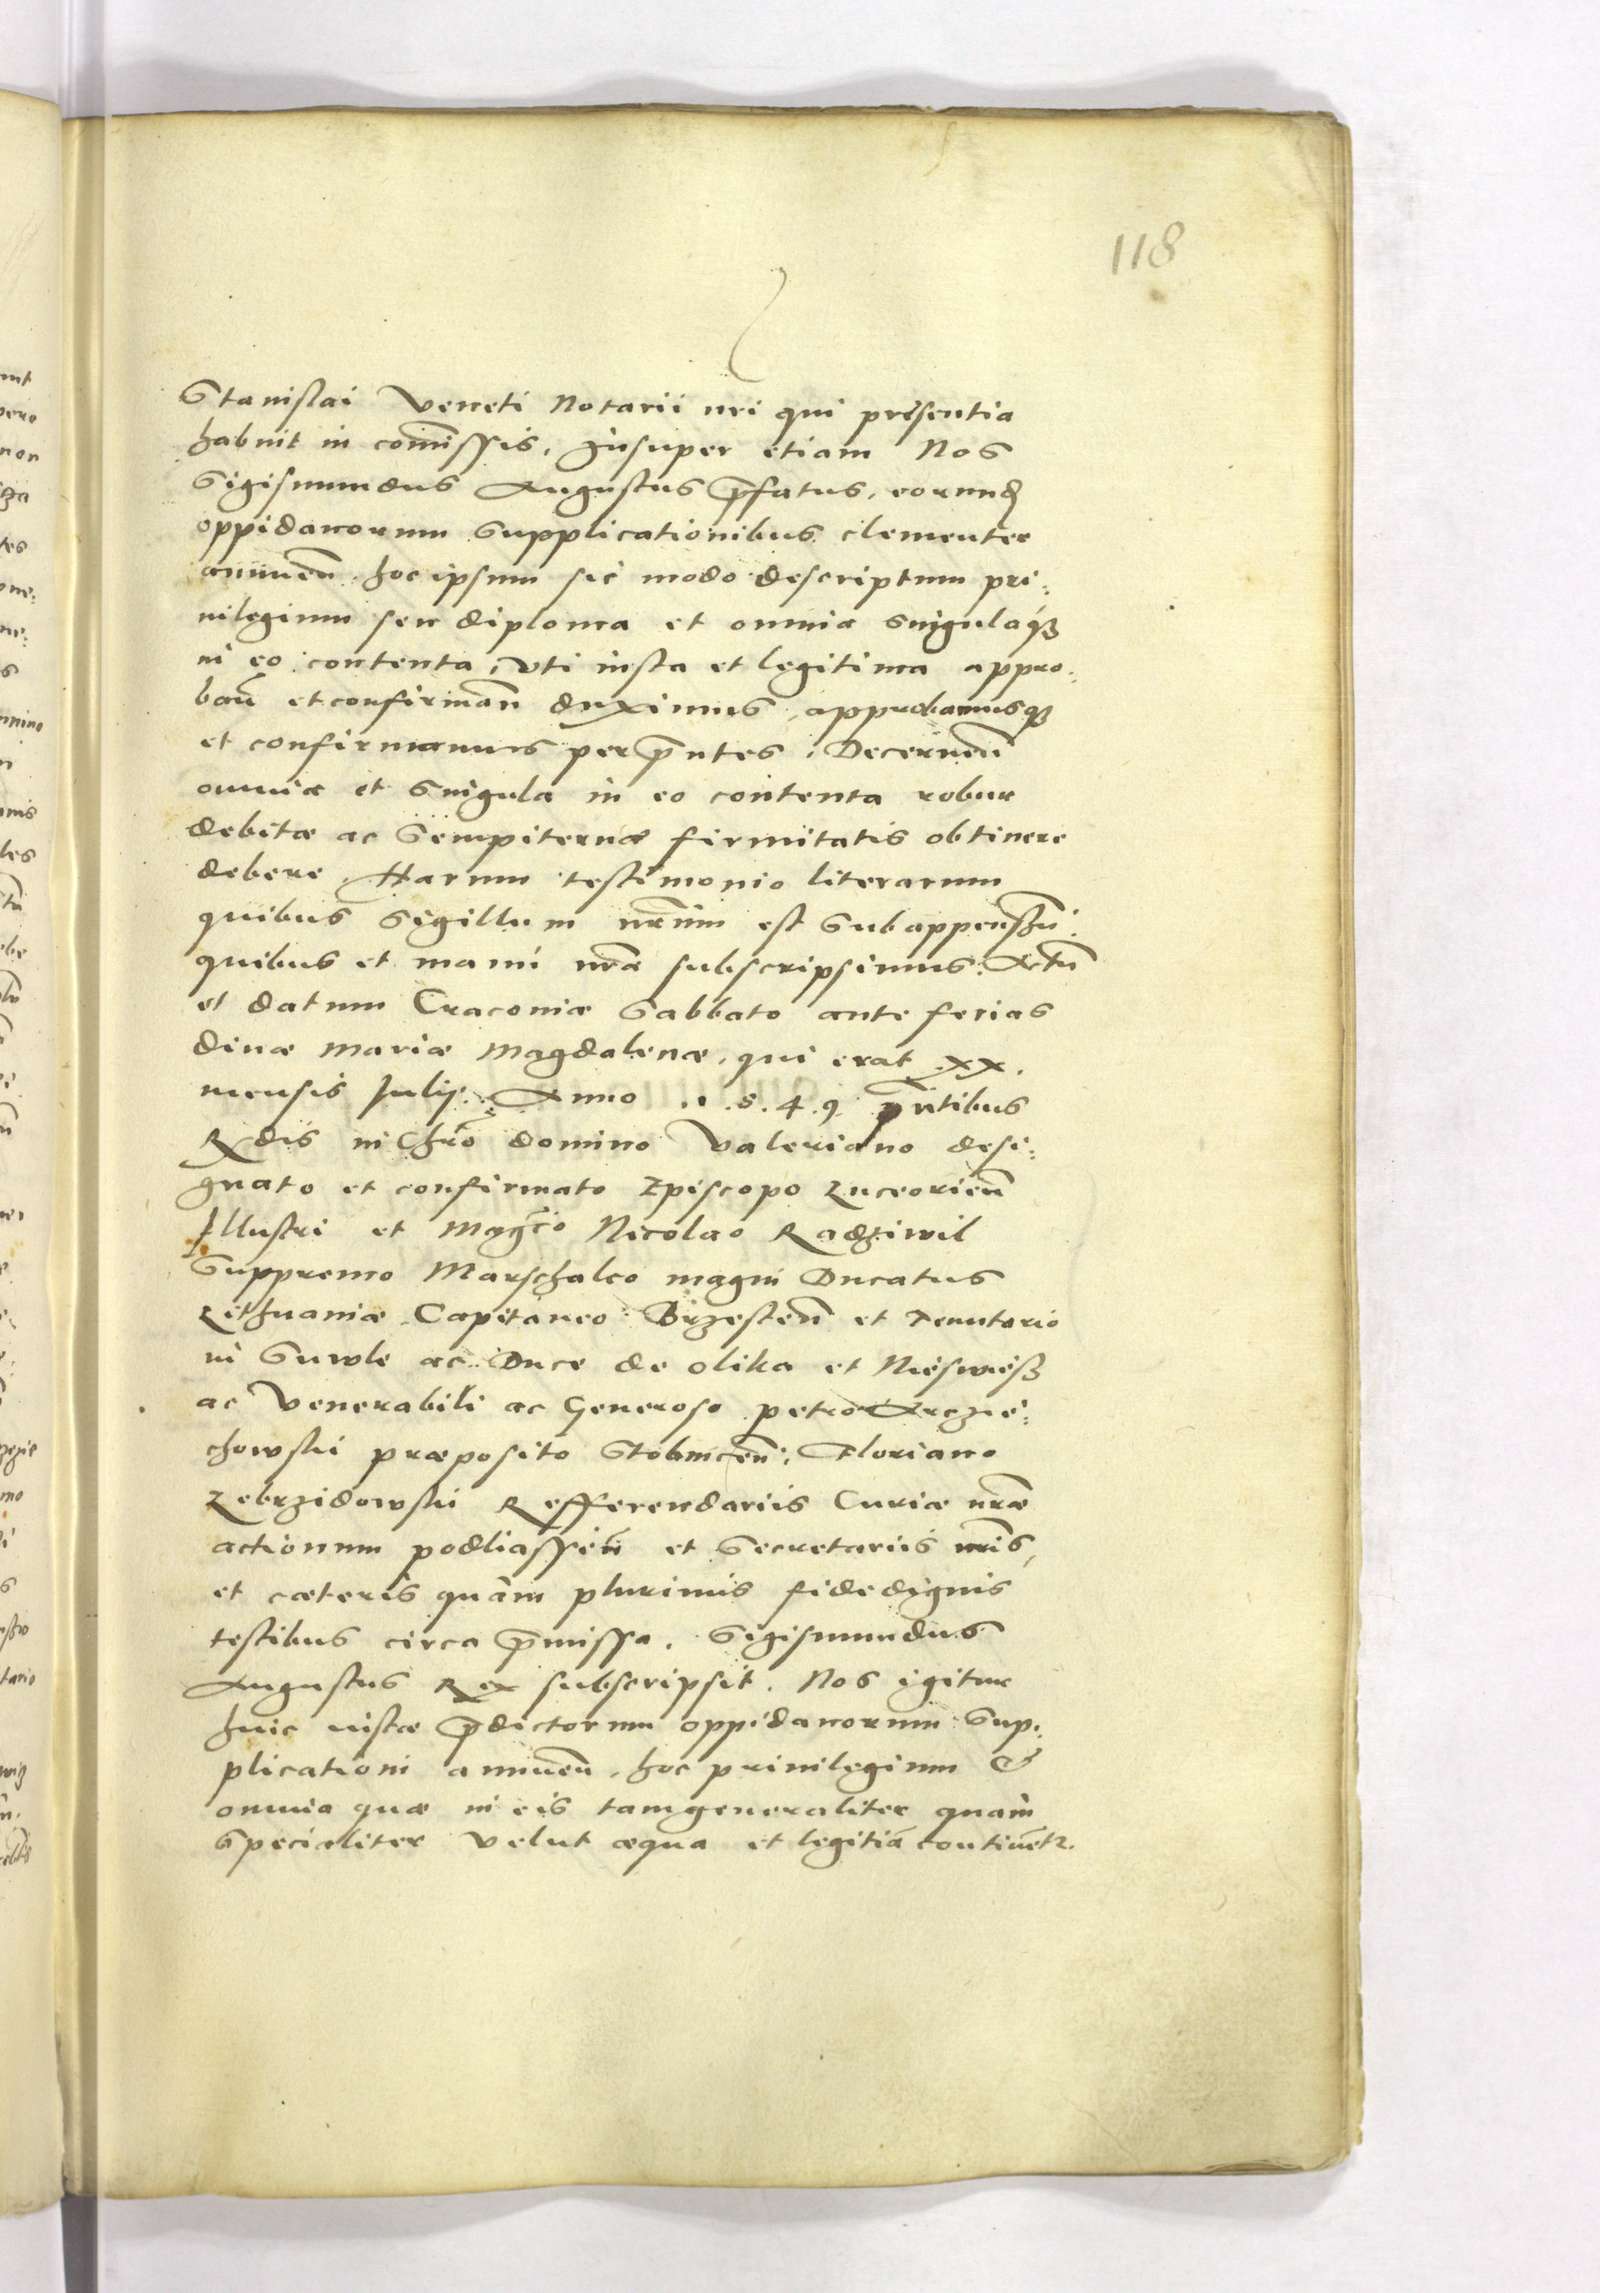 118
Stanislai Veneti Notarii nri qui presentia
habuit in comissis. Insuper etiam Nos
Sigismundus Augustus p̄fatus, eorund
oppidanorum supplicationibus clementer
annuen̄ hoc ipsum sic modo descriptum pri:
uilegium seu diploma et omnia singulaq₃
in eo contenta, vti iusta et legitima appro:
ban̄ et confirman̄ duximus, approbamusq₃
et confirmamus per p̄ntes. Decernen̄
omnia et singula in eo contenta robur
debitæ ac sempiternæ firmitatis obtinere
debere. Harum testimonio literarum
quibus sigillum nr̄um est subappensū
quibus et manu nr̄a subscripsimus. Actū
et datum Cracouiæ Sabbato ante ferias
diuæ Mariæ Magdalenæ, qui erat xx.
mensis Julij. Anno .1.5.4.9. p̄ntibus
Rdis in Chr̄o domino Valeriano desi:
gnato et confirmato Episcopo Luceorien̄
Illustri et Mag̅co Nicolao Radziwil
Suppremo Marschalco magni Ducatus
Lithuaniæ Capitaneo Brzesten̄ et Tenutario
in Suwle ac Duce de Olika et Nieswiesz
ac Venerabili ac Generoso Petro Arczie:
chowski præposito Stobnicen̄, Floriano
Zebrzidowski Refferendariis Curiæ nr̄æ
actionum podliassien̄ et Secretariis nr̄is,
et cæteris quàm plurimis fidedignis
testibus circa p̄missa. Sigismundus
Augustus Rex subscripsit. Nos igitur
huic iustæ p̄dictorum oppidanorum sup:
plicationi annuen̄, hoc priuilegium &
omnia quæ in eis tam generaliter quàm
specialiter velut æqua et legitiā continētr.